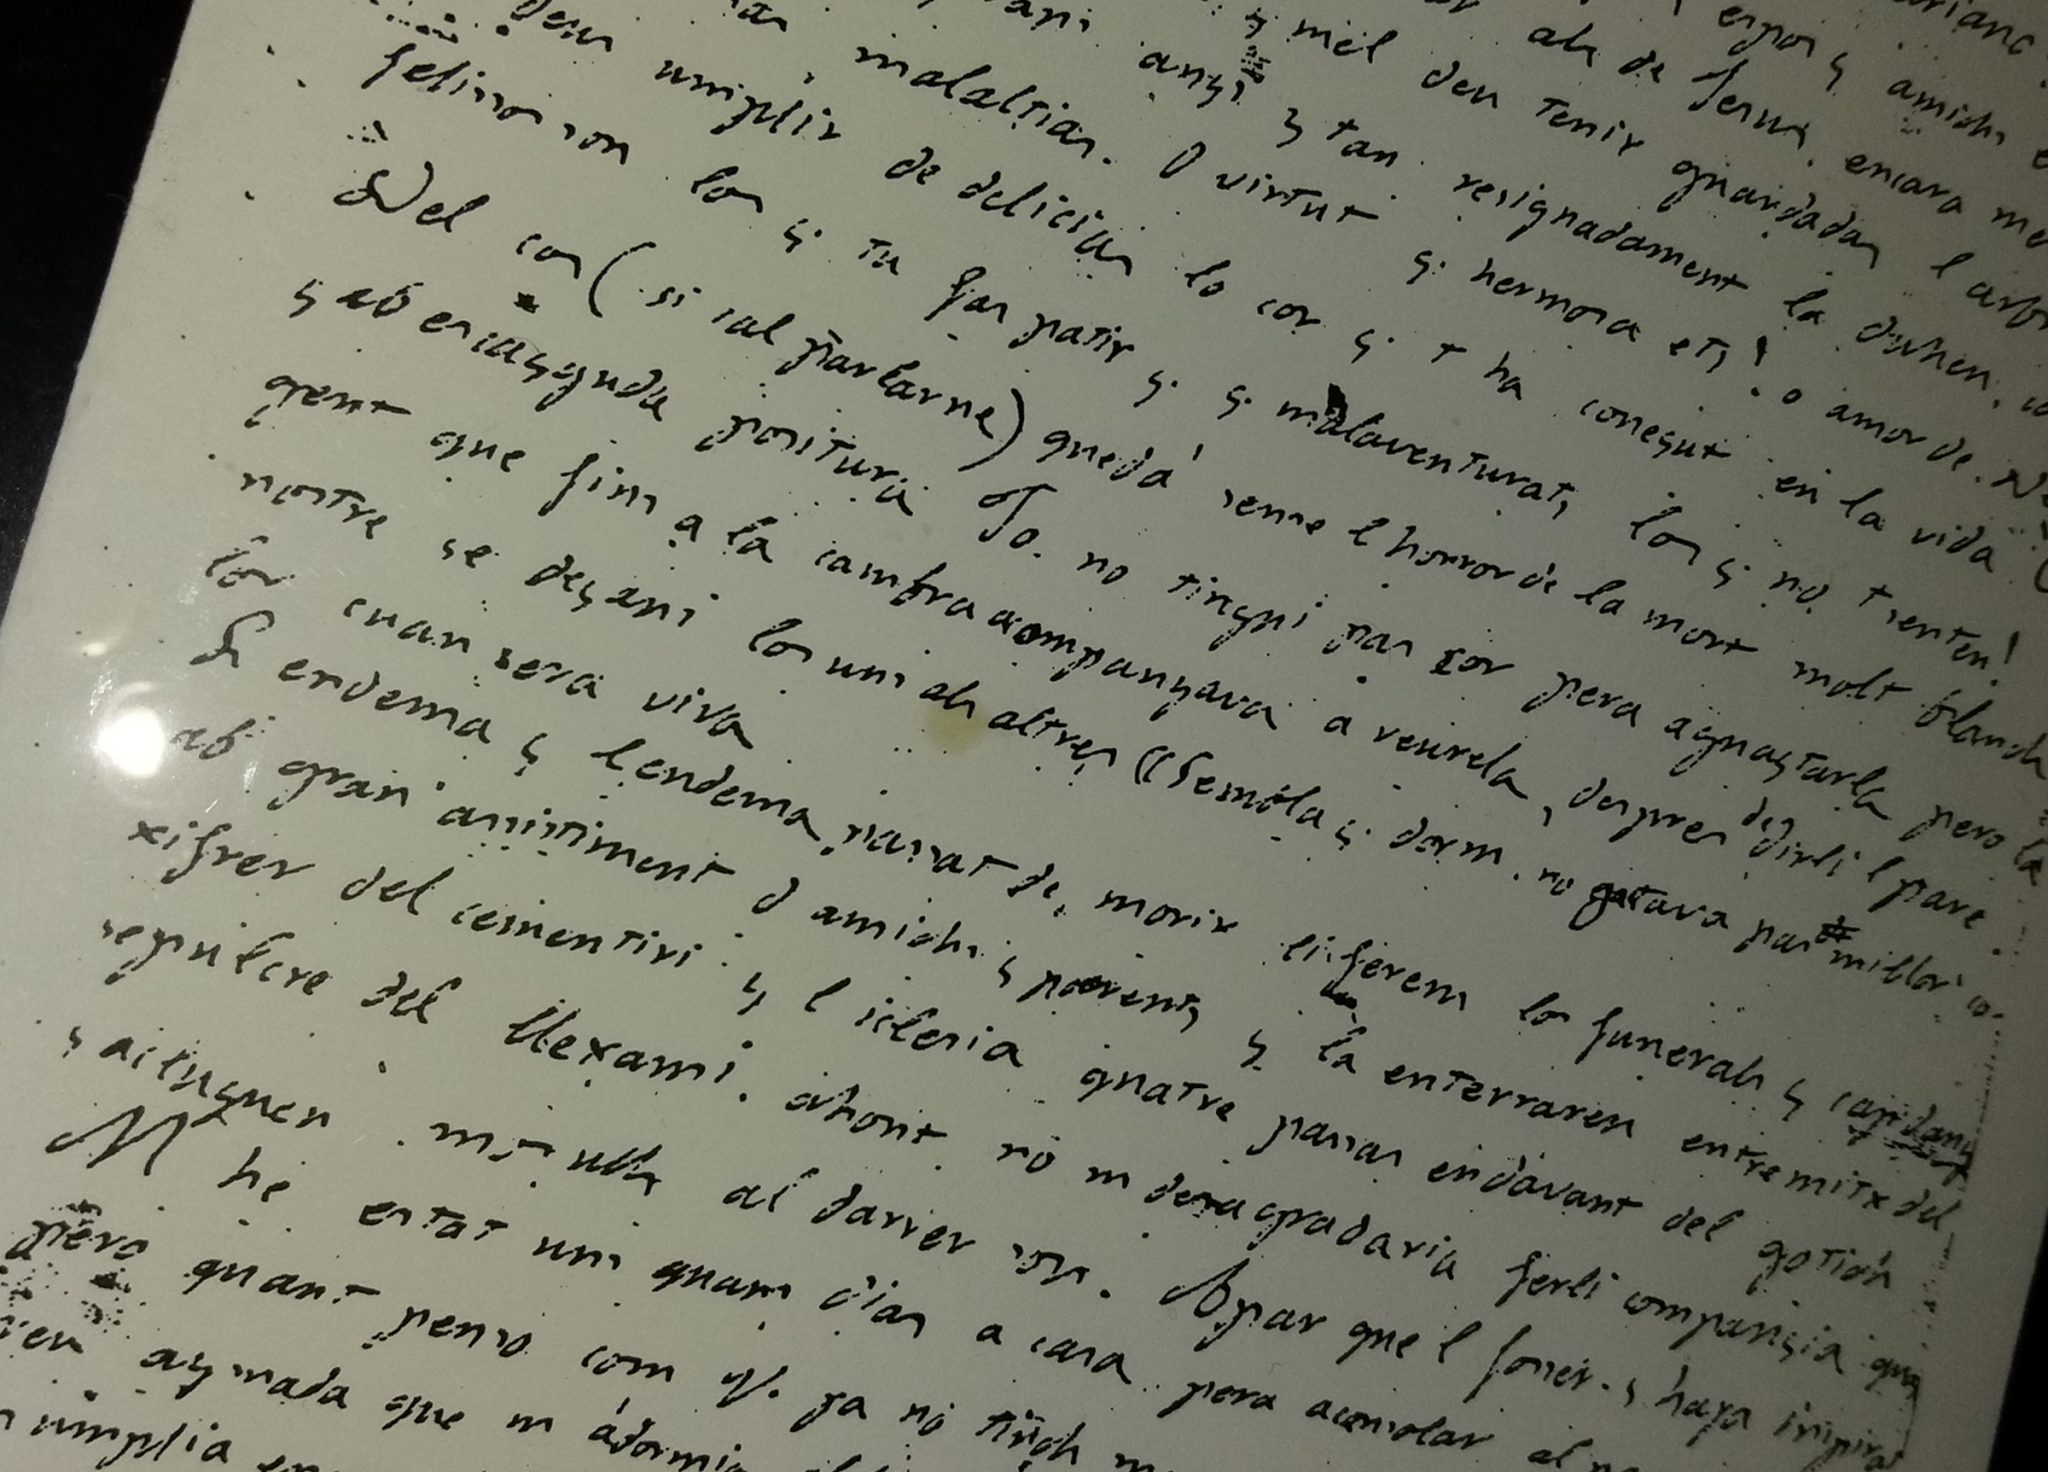 espos y amichs
als de ferm. encara
q. mel deu tenir guardadas l
y tan resignadament la duhen,
malaltias. O virtut q. hermosa ets! o amor de
Deu umplir de delicias lo cor q. t ha conegut en la vida!
felissos son los q. tu fas patir q. q malaventurats los q. no t senten!
Del cos ( si cal parlarne ) quedá sense l horror de la mort molt blanch
y ab encayguda positura Jo. no tingui pas cor pera aguaytarla pero la
gent que fins a la cambra acompanyava a veurela, despres de dirli l pare
nostre se deyan los uns als altres «Sembla q. dorm. no gastava pas millor co-
lor cuan sera viva
L endema y l endema passat de morir li ferem los funerals y capdany
ab gran assistiment d amichs y parents y la enterraren entremitx del
xifrer del cementiri y l iclesia quatre passas endavant del gotich
sepulcre del Llexami. ahont no m desagradaria ferli companyia quan
ulls al darrer son. Apar que l fosser. y haya inspirat
M he estat uns quans dias a casa pera aconsolar al
pero quant penso com q. ja no tinch
que m adormia
umplia